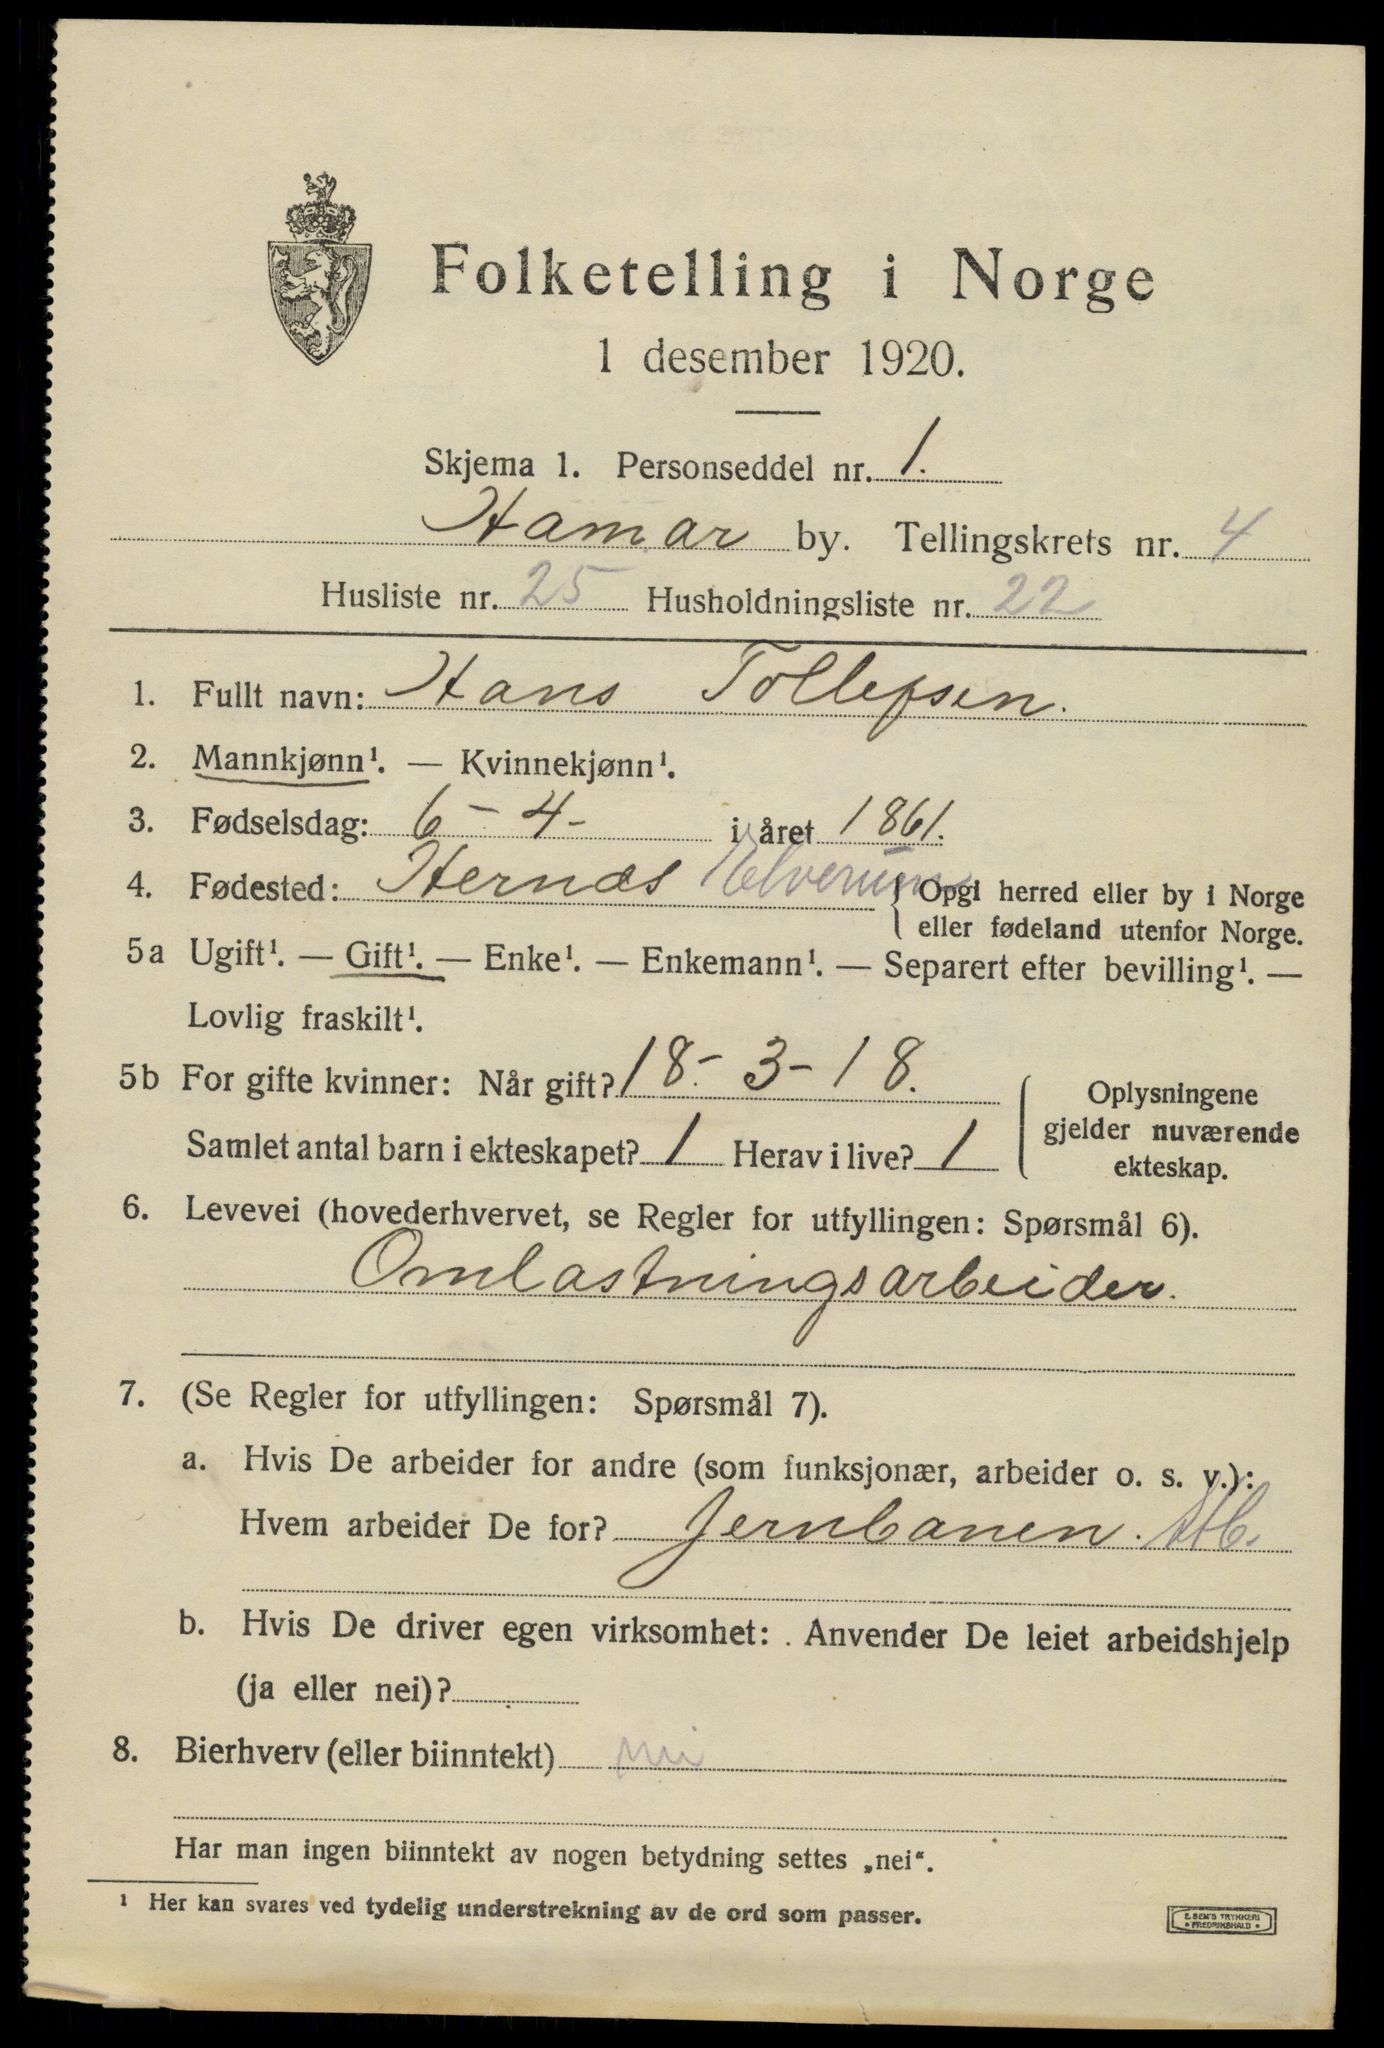 Folketelling i Norge
1 desember 1920.
Skjema 1. Personseddel nr. 1.
Hamar by. Tellingskrets nr. 4
Husliste nr. 25 Husholdningsliste nr. 22
1. Fullt navn: Hans Tollefsen.
2. Mannkjønn¹. — Kvinnekjønn¹.
3. Fødselsdag: 6 - 4 - i året 1861.
4. Fødested: Hernes Elverum { Opgi herred eller by i Norge
eller fødeland utenfor Norge.
5a Ugift¹. — Gift¹. — Enke¹. — Enkemann¹. — Separert efter bevilling¹. —
Lovlig fraskilt¹.
5b For gifte kvinner: Når gift? 18.-3-18.
Samlet antal barn i ekteskapet? 1 Herav i live? 1
{ Oplysningene
gjelder nuværende
ekteskap.
6. Levevei (hovederhvervet, se Regler for utfyllingen: Spørsmål 6).
Omlastningsarbeider.
7. (Se Regler for utfyllingen: Spørsmål 7).
a. Hvis De arbeider for andre (som funksjonær, arbeider o. s. v.):
Hvem arbeider De for? Jernbanen.
b. Hvis De driver egen virksomhet: Anvender De leiet arbeidshjelp
(ja eller nei)?
8. Bierhverv (eller biinntekt) nei
Har man ingen biinntekt av nogen betydning settes „nei“.
¹ Her kan svares ved tydelig understrekning av de ord som passer.
E. SEM'S TRYKKERI
• FREDRIKSHALD •